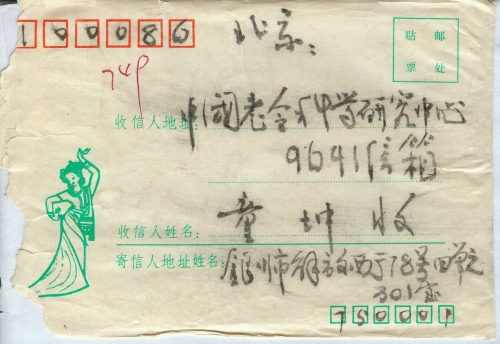 100086
北京:
贴 邮
票 处
749
收信人地址: 中国老令科学研究中心
9641信箱
收信人姓名: 童坤收
寄信人地址姓名: 银川市解放西于78号四单元
301室
750001